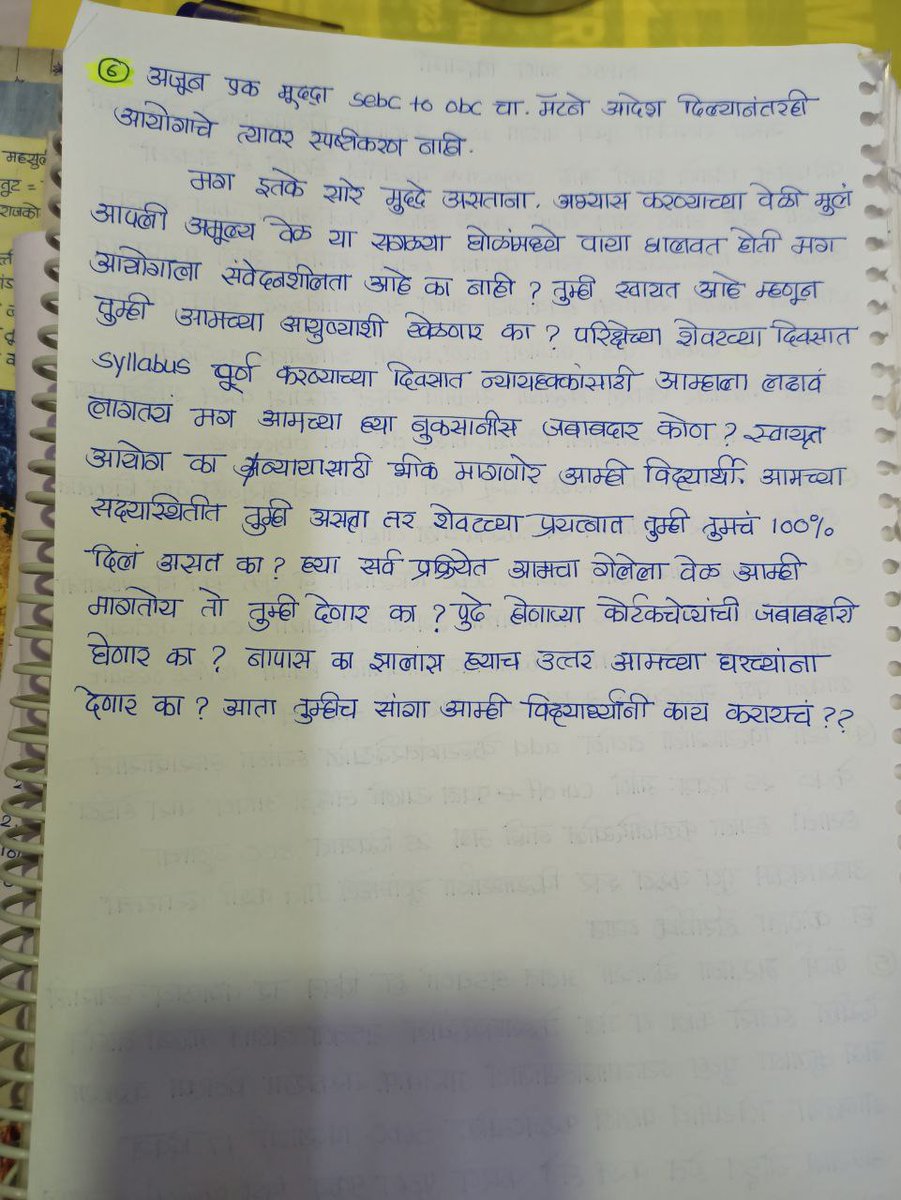 ⑥ अजून एक मूद्दा sebc to obc चा. मॅटने आदेश दिल्यानंतरही
आयोगाचे त्यावर स्पष्टीकरण नाही.
मग इतके सारे मुद्दे असताना. अभ्यास करण्याच्या वेळी मुलं
आपली अमूल्य वेळ या सगळ्या घोळांमध्ये वाया घालवत होती मग
आयोगाला संवेदनशीलता आहे का नाही ? तुम्ही स्वायत आहे म्हणून
तुम्ही आमच्या आयुष्याशी खेळणार का ? परिक्षेच्या शेवटच्या दिवसात
syllabus पूर्ण करण्याच्या दिवसात न्यायहक्कांसाठी आम्हाला लढावं
लागतय मग आमच्या ह्या नुकसानीस जबाबदार कोण ? स्वायत्त
आयोग का न्यायासाठी भीक मागणारे आम्ही विद्यार्थी. आमच्या
सद्यस्थितीत तुम्ही असता तर शेवटच्या प्रयत्नात तुम्ही तुमचं 100%
दिलं असत का ? ह्या सर्व प्रक्रियेत आमचा गेलेला वेळ आम्ही
मागतोय तो तुम्ही देणार का ? पुढे होणाऱ्या कोर्टकचेऱ्यांची जबाबदारी
घेणार का ? नापास का झालांस ह्याच उत्तर आमच्या घरच्यांना
देणार का ? आता तुम्हीच सांगा आम्ही विद्यार्थ्यांनी काय करायचं ??
महसुल
तूट =
राजको